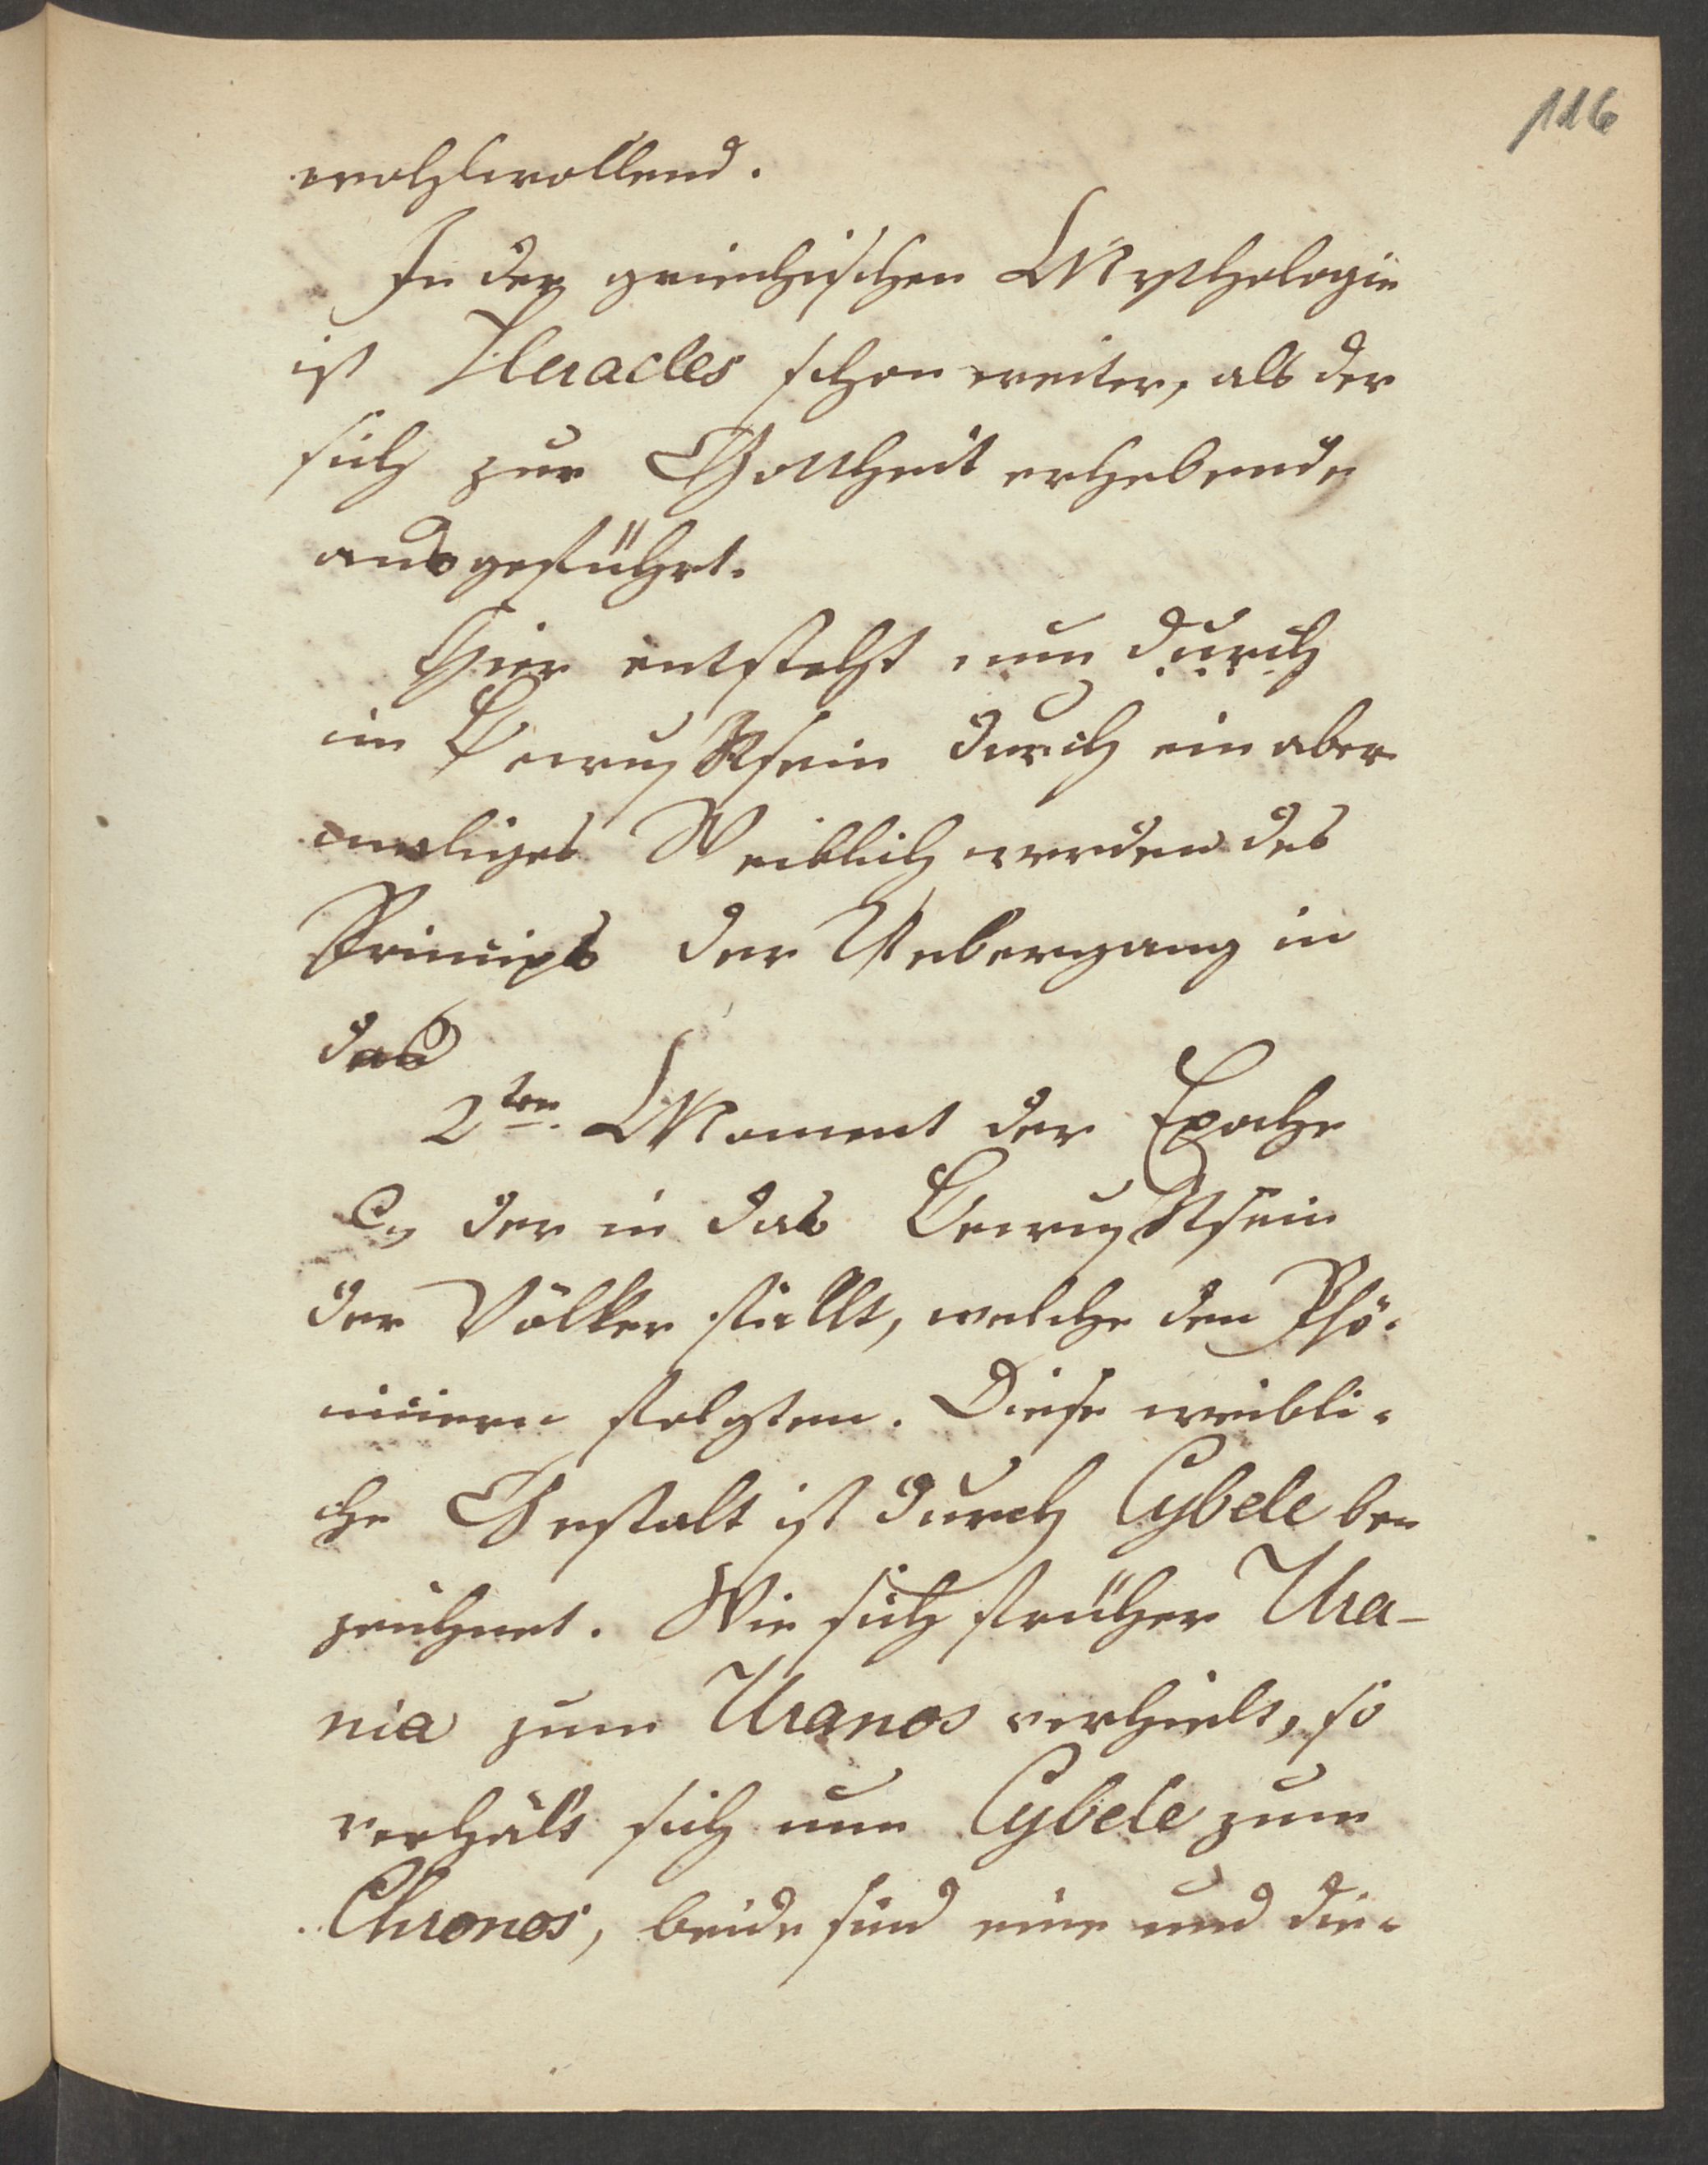 116
wohlwollend.
In der griechischen Mythologie
ist Heracles schon weiter, als der
sich zur Gottheit erhebende
ausgeführt.
Hier entsteht nun durch
im Bewußtsein durch ein aber
maliges Weiblichwerden des
Princips der Uebergang in
das
2ten. Moment der Epoche
C, der in das Bewußtsein
der Völker fällt, welche den Phö-
niciern folgten. Diese weibli-
che Gestalt ist durch Cybele be
zeichnet. Wie sich früher Ura-
nia zum Uranos verhielt, so
verhält sich nun Cybele zum
Chronos, beide sind eine und die-